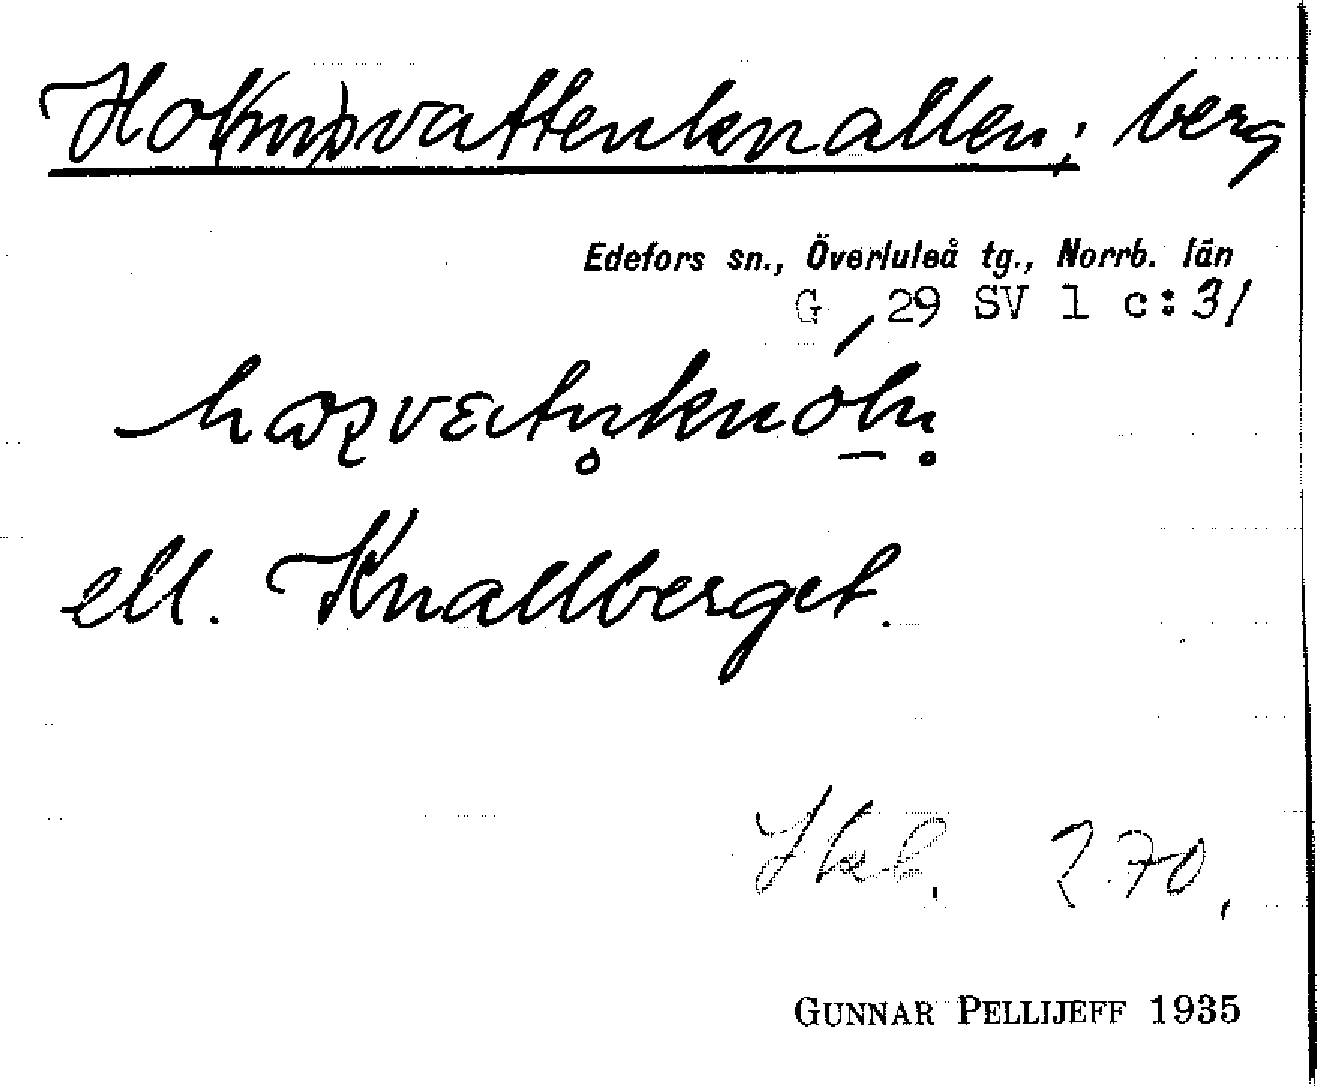 Ho(lm)svattenknallen; berg
Edefors sn., Överluleå tg., Norrb. län
G 29 SV 1 c:31
ell. Knallberget.
270,
GUNNAR PELLIJEFF 1935